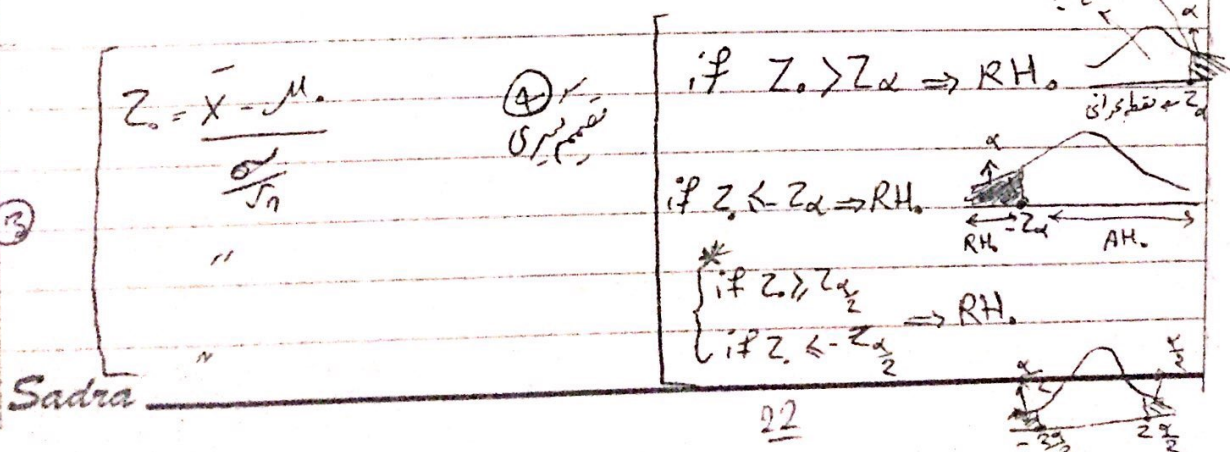 ③
Z₀ = (X̄ - μ₀) / (σ/√n)
"
"
④ تصمیم گیری
if Z₀ > Zα ⇒ RH₀
α
Zα → نقطه بحرانی
if Z₀ ≤ -Zα ⇒ RH₀
α
RH₀ -Zα AH₀
*
{ if Z₀ ≥ Zα/2
if Z₀ ≤ -Zα/2 ⇒ RH₀
α/2 α/2
-Zα/2 Zα/2
Sadra
22